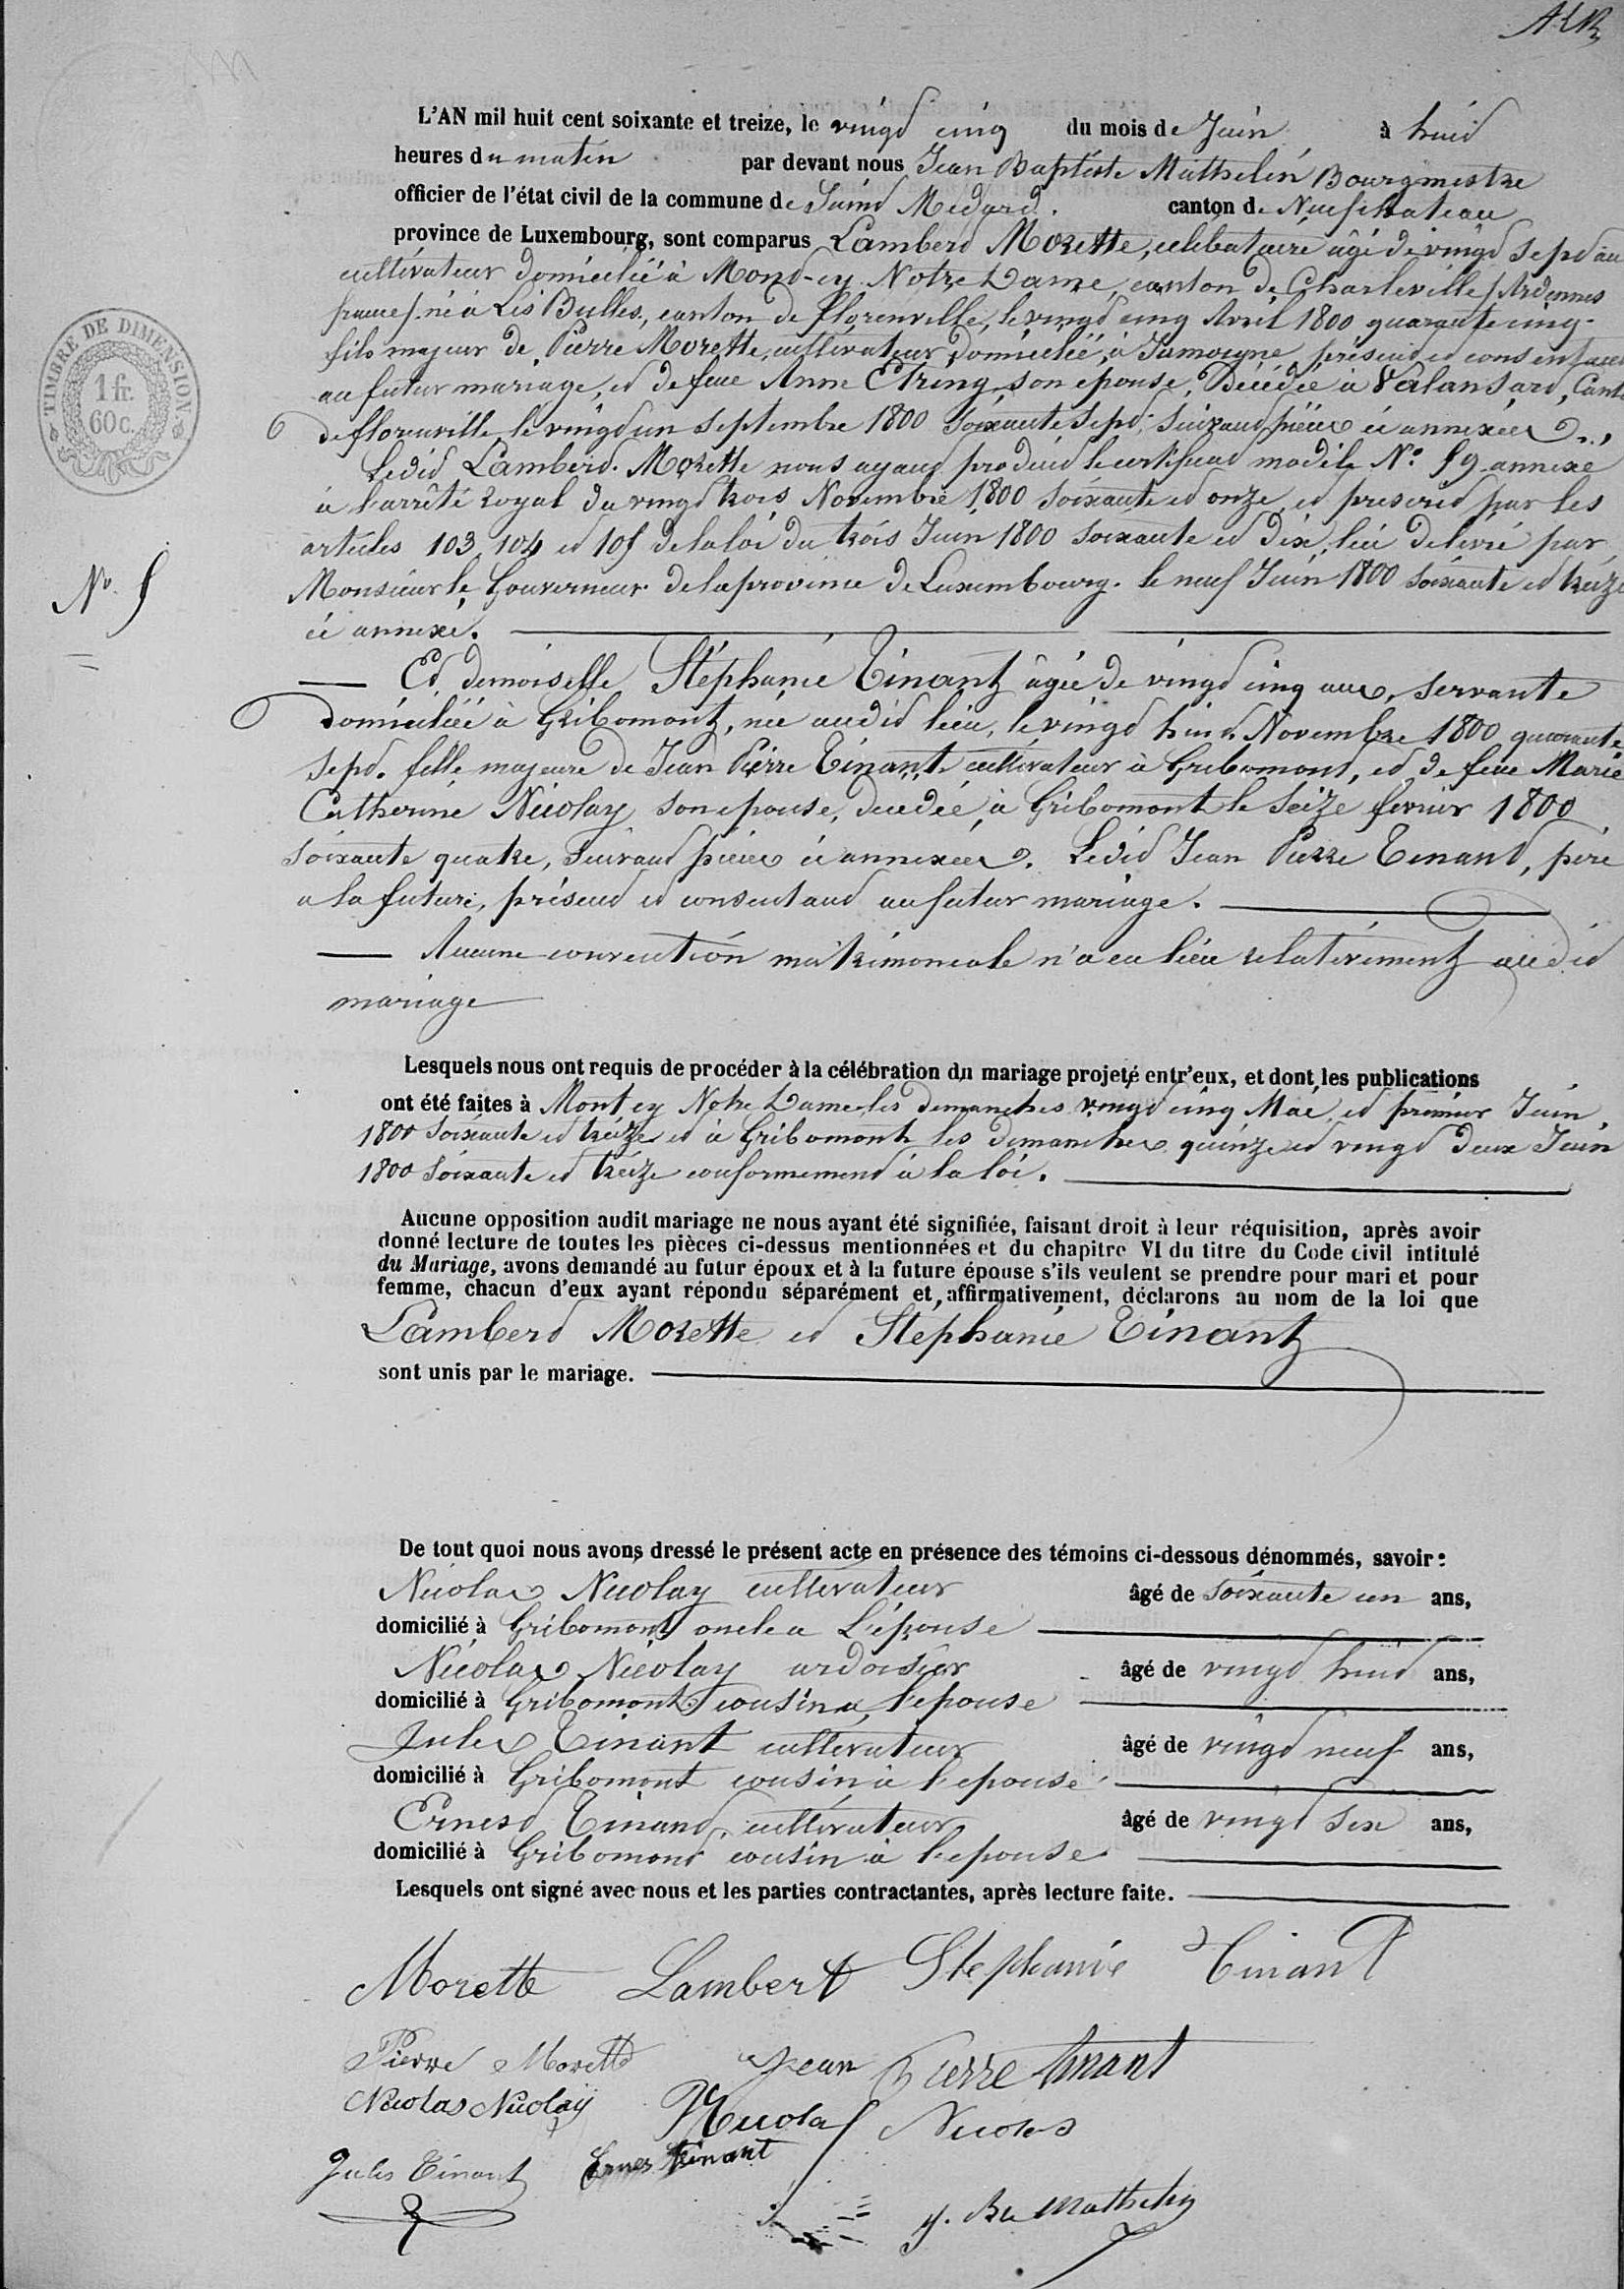 L'AN mil huit cent soixante et treize, le vingt cinq du mois de Juin à huit
heures du matin par devant nous Jean Baptiste Mathelin Bourgmestre
officier de l'état civil de la commune de Saint Médard. canton de Neufchateau
province de Luxembourg, sont comparus Lambert Morette, célibataire âgé de vingt sept an
cultivateur domicilié à Mont-cy Notre Dame, canton de Charleville / Ardennes
france / né à Les Bulles, canton de florenville, le vingt cinq Avril 1800 quarante cinq.
fils majeur de Pierre Morette, cultivateur domicilié à Jamoigne présent et consentant
au futur mariage, et de feue Anne Etring son epouse, Décédée à Valansart, Cant
de florenville le vingt un septembre 1800 soixante sept, suivant pièces ci annexées
Ledit Lambert Morette nous ayant produit le certificat modèle N° 59 annexé
à l'arrêté royal du vingt trois Novembre 1800 soixante et onze et prescrit par les
articles 103, 104 et 105 de la loi du trois Juin 1800 soixante et dix, lui delivré par
Monsieur le Gouverneur de la province de Luxembourg. le neuf Juin 1800 soixante et treize
N° 5
ci annexé.
Et demoiselle Stéphanie Tinant âgée de vingt cinq ans, servante
domiciliée à Gribomont, née audit lieu, le vingt huit Novembre 1800 quarante
sept. fille majeure de Jean Pierre Tinant cultivateur à Gribomont, et de feue Marie
Catherine Nicolay son epouse, decedée à Gribomont le seize fevrier 1800
soixante quatre, suivant pièces ci annexées. Ledit Jean Pierre Tinant, père
a la future, présent et consentant au futur mariage.
Aucune convention matrimoniale n'a eu lieu relativement audit
mariage
Lesquels nous ont requis de procéder à la célébration du mariage projeté entr'eux, et dont les publications
ont été faites à Mont cy Notre Dame les dimanches vingt cinq Mai et premier Juin
1800 soixante et treize et à Gribomont les dimanches quinze et vingt deux Juin
1800 soixante et treize conformement à la loi.
Aucune opposition audit mariage ne nous ayant été signifiée, faisant droit à leur réquisition, après avoir
donné lecture de toutes les pièces ci-dessus mentionnées et du chapitre VI du titre du Code civil intitulé
du Mariage, avons demandé au futur époux et à la future épouse s'ils veulent se prendre pour mari et pour
femme, chacun d'eux ayant répondu séparément et affirmativement, déclarons au nom de la loi que
Lambert Morette et Stephanie Tinant
sont unis par le mariage.
De tout quoi nous avons dressé le présent acte en présence des témoins ci-dessous dénommés, savoir:
Nicolas Nicolay cultivateur âgé de soixante un ans,
domicilié à Gribomont oncle a l'épouse
Nicolas Nicolay ardoisier âgé de vingt huit ans,
domicilié à Gribomont cousin a l'epouse
Jules Tinant cultivateur âgé de vingt neuf ans,
domicilié à Gribomont cousin à l'epouse
Ernest Tinant cultivateur âgé de vingt six ans,
domicilié à Gribomont cousin à l'epouse
Lesquels ont signé avec nous et les parties contractantes, après lecture faite.
Morette Lambert Stephanie Tinant
Pierre Morette Jean Pierre tinant
Nicolas Nicolay Nicolas Nicolas
Jules Tinant Ernest Tinant
J. Bte Mathelin
TIMBRE DE DIMENSION
1 fr.
60 c.